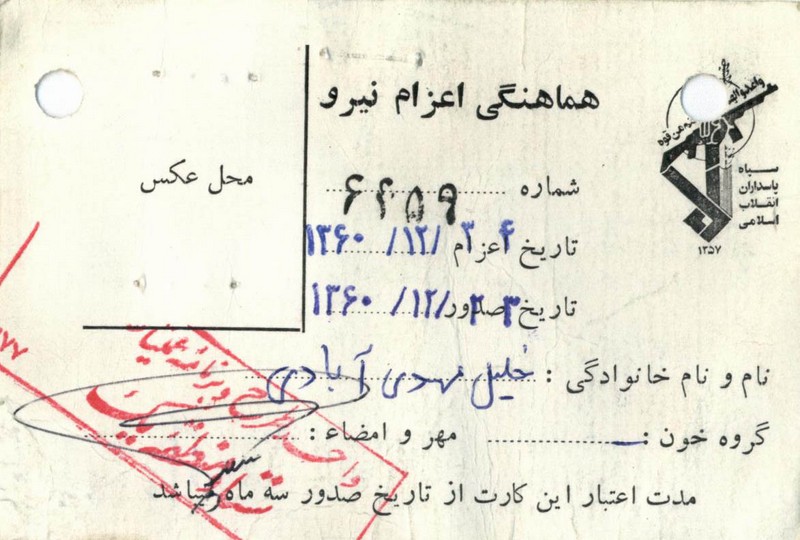 هماهنگی اعزام نیرو
سپاه
پاسداران
انقلاب
اسلامی
۱۳۵۷
محل عکس
شماره ۶۴۵۹
تاریخ اعزام ۲۴/۱۲/۱۳۶۰
تاریخ صدور ۲۳/۱۲/۱۳۶۰
نام و نام خانوادگی : خلیل مهدی آبادی
گروه خون : — مهر و امضاء :
مدت اعتبار این کارت از تاریخ صدور سه ماه میباشد